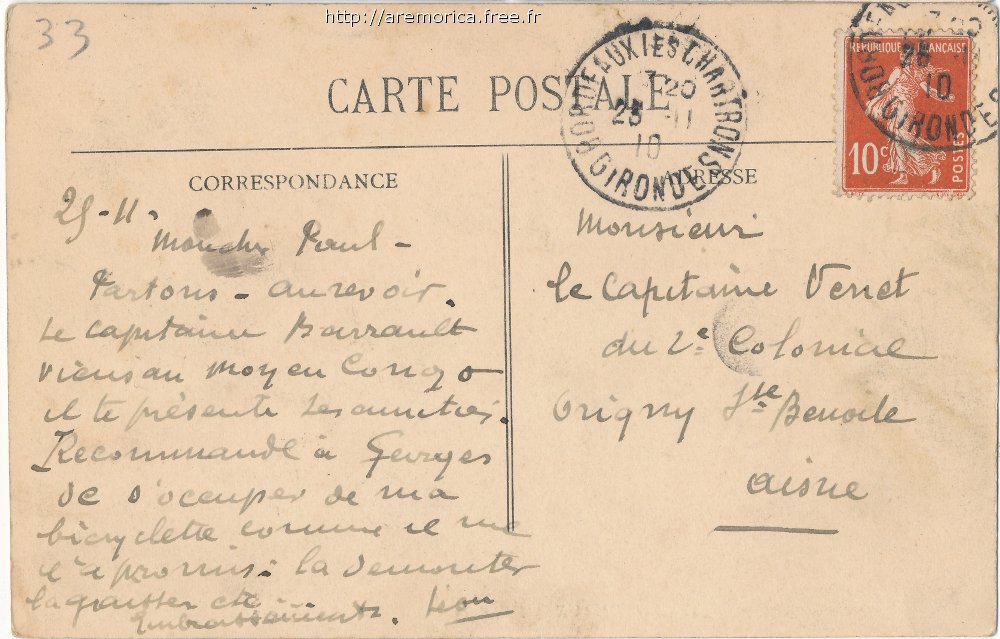 http://aremorica.free.fr
33
CARTE POSTALE
BORDEAUX LES CHARTRONS
7 20
25 - 11
10
GIRONDE
25
10
GIRONDE
REPUBLIQUE FRANÇAISE
10c
POSTES
CORRESPONDANCE
ADRESSE
25-11-
Mon cher Paul -
Partons - au revoir.
Le capitaine Barrault
viens au Moyen Congo
il te présente ses amitiés.
Recommande à Georges
de s'occuper de ma
bicyclette comme il me
l'a promis : la démonter
la graisser etc
Embrassements. Léon
Monsieur
le Capitaine Venet
du 2e Colonial
Origny Ste Benoite
Aisne